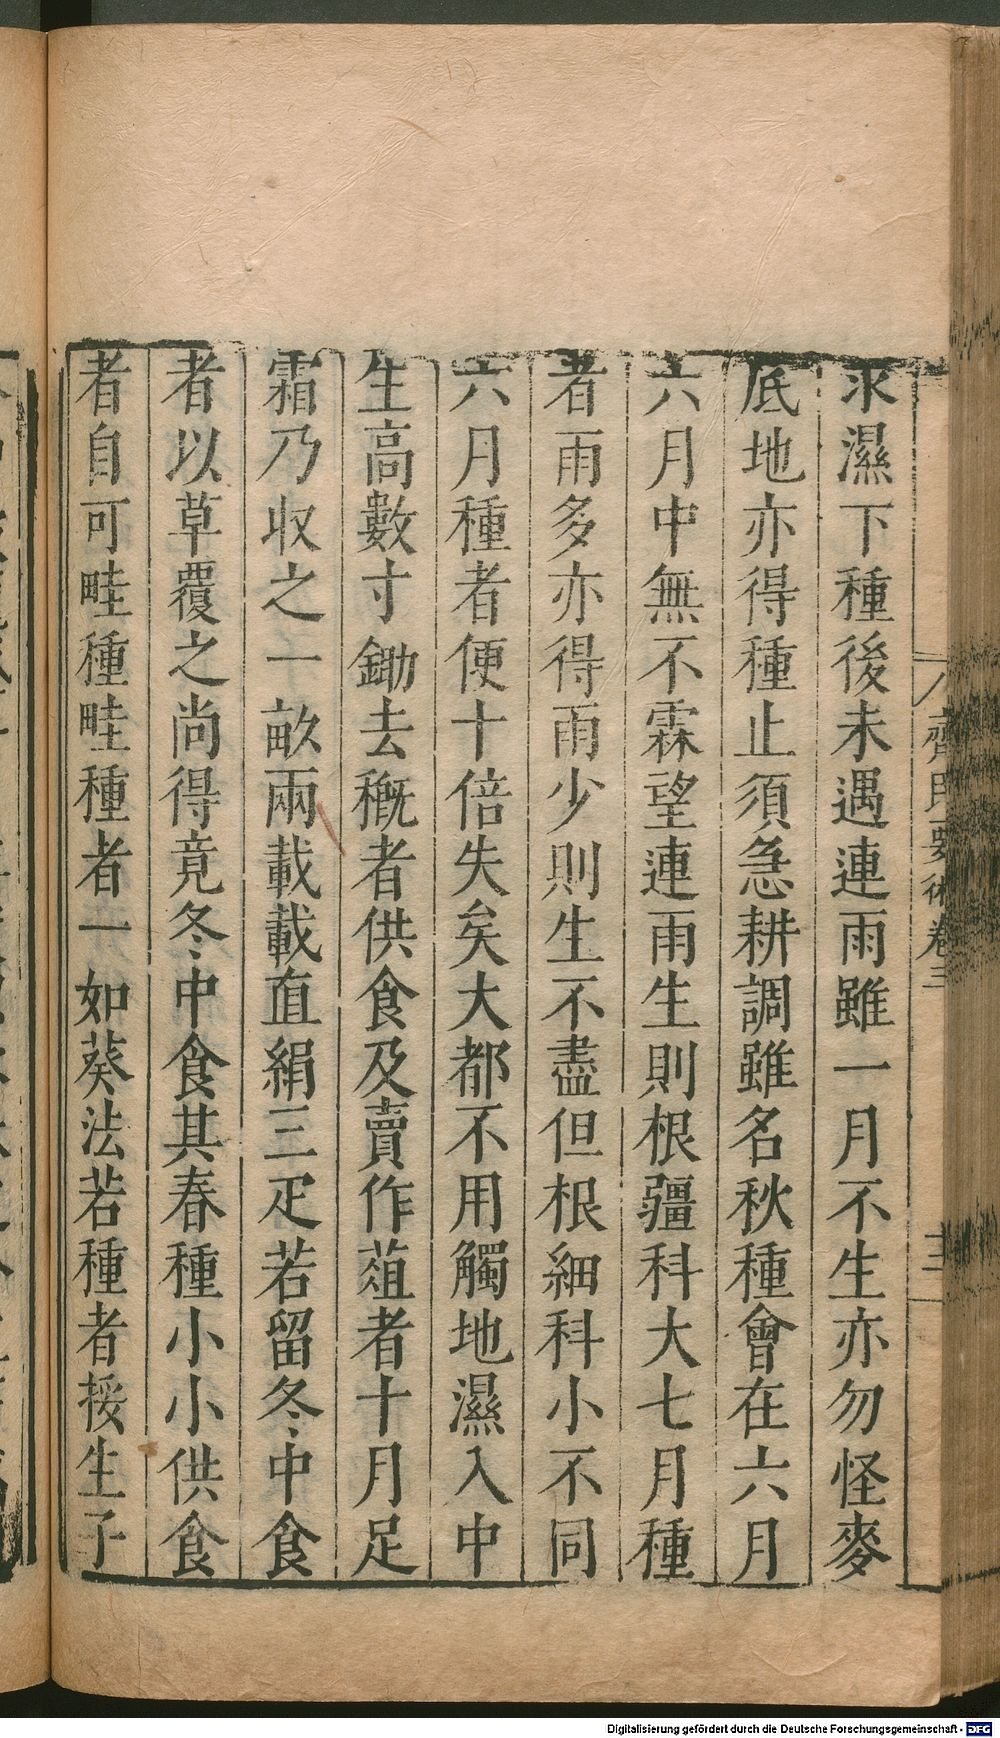 求濕下種後未遇連雨雖一月不生亦勿怪麥
底地亦得種止須急耕調雖名秋種會在六月
六月中無不霖望連雨生則根疆科大七月種
者雨多亦得雨少則生不盡但根細科小不同
六月種者便十倍失矣大都不用觸地濕入中
生高數寸鋤去穊者供食及賣作葅者十月足
霜乃收之一畝兩載載直絹三疋若留冬中食
者以草覆之尚得竟冬中食其春種小小供食
者自可畦種畦種者一如葵法若種者挼生子
齊民要術卷三
十三
Digitalisierung gefördert durch die Deutsche Forschungsgemeinschaft - DFG